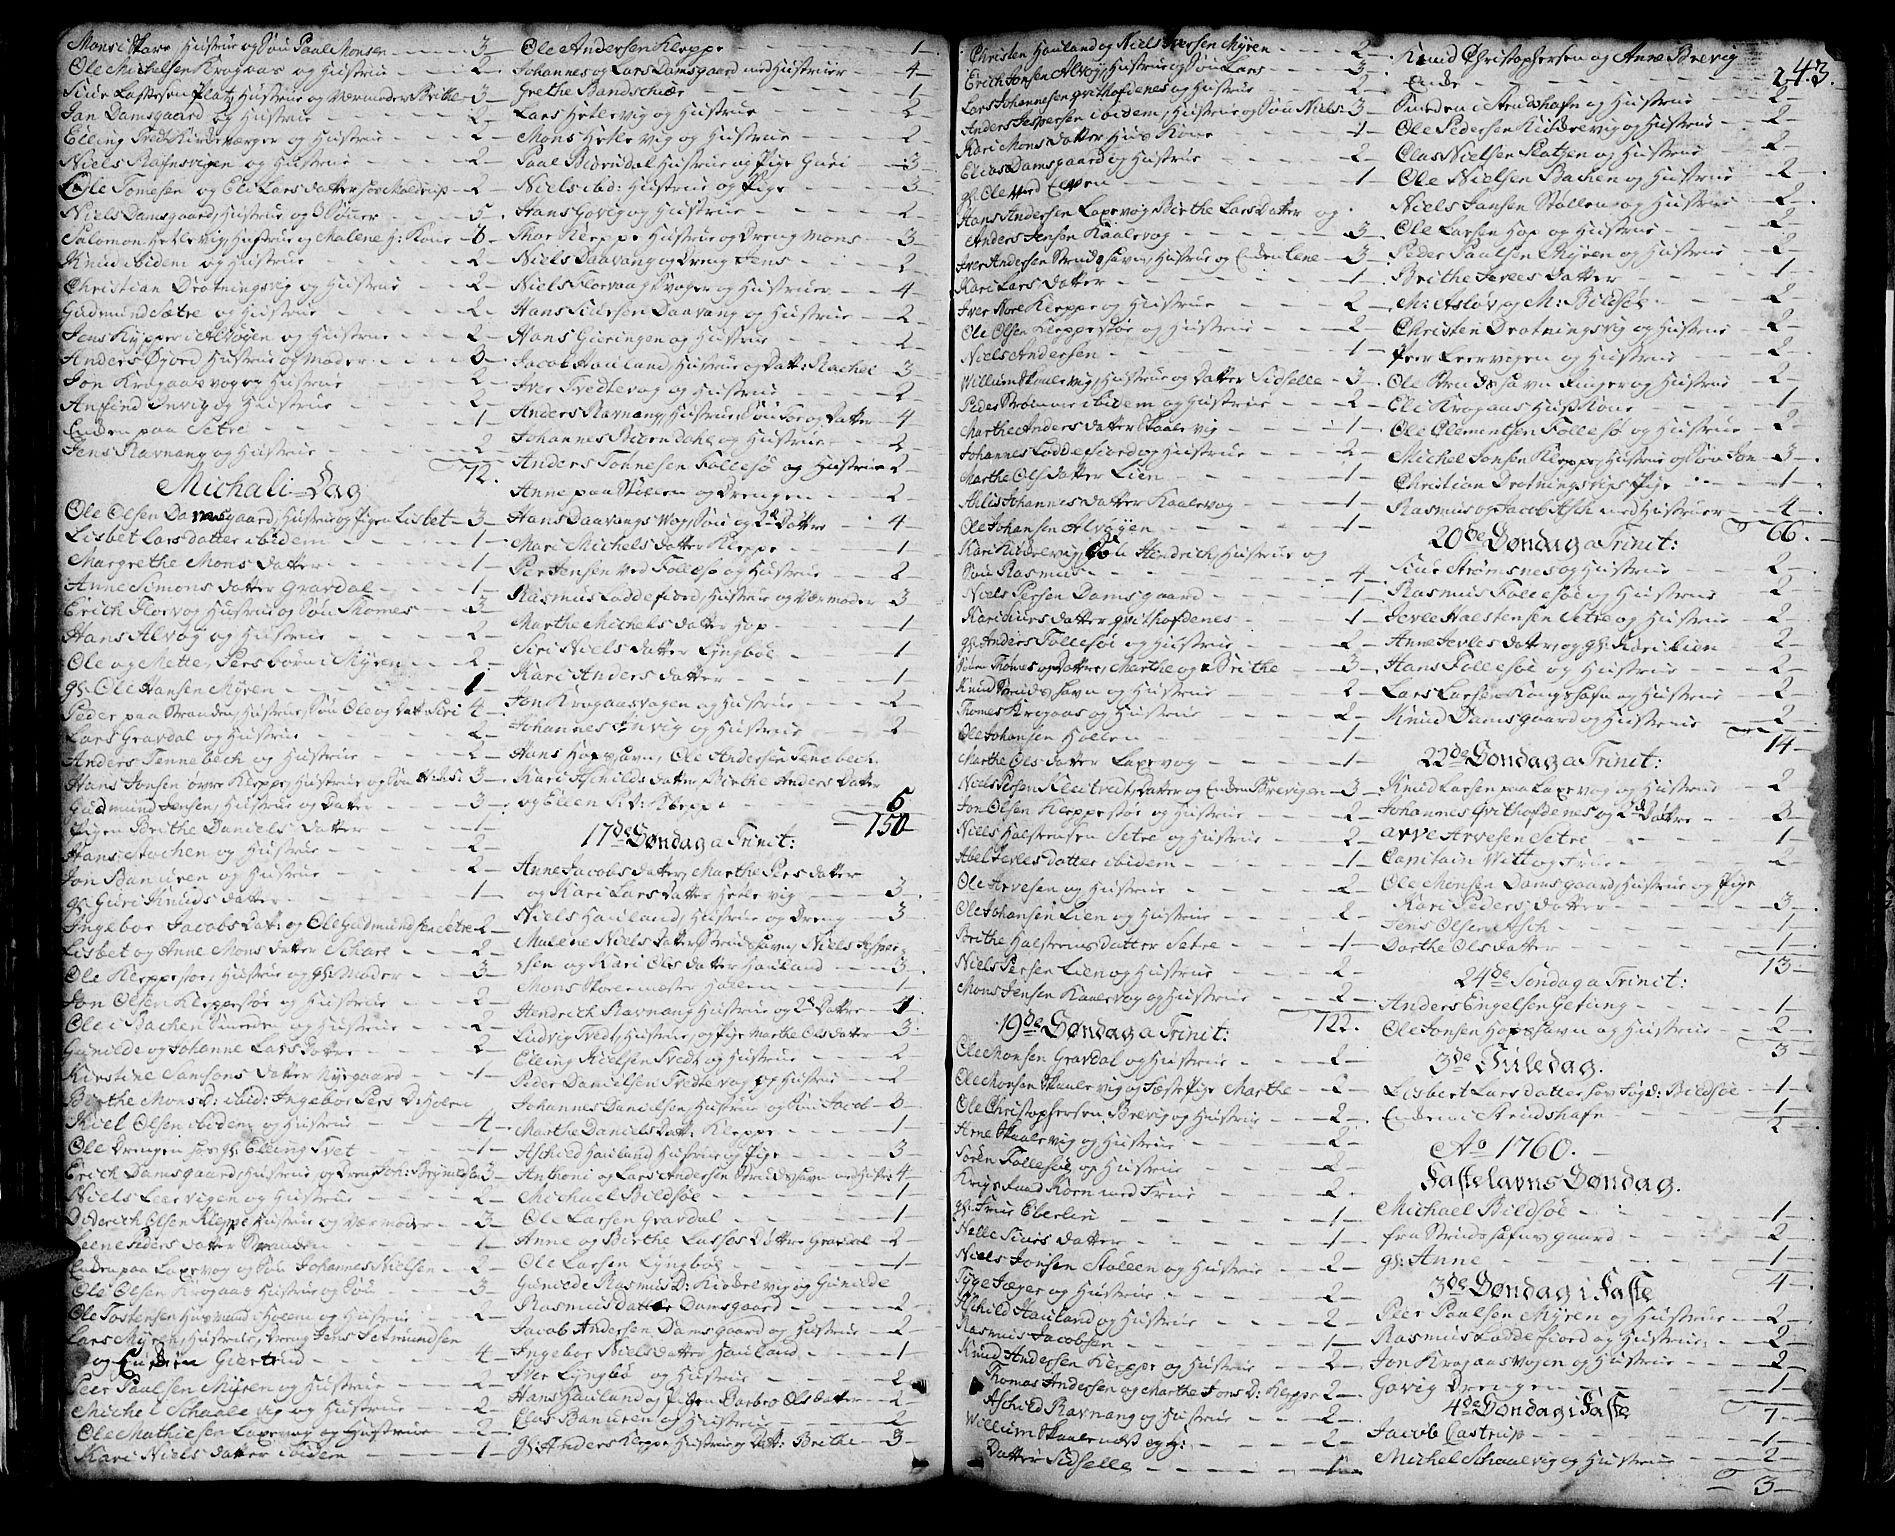 Mons i Skare, Hustrue og Søn Paul Monsen - 3
Ole Michelsen Krogaas og Hustrue - 2
Siur Lassesen Platz Hustrue og Værmoder Brithe - 3
Jan Damsgaard og Hustrue - 2
Elling Tvedt Kirdeværger og Hustrue - 2
Niels Rafnsvigen og Hustrue - 2
Ole Tomesen og Eli Lars datter hos Maldrup - 2
Niels Damsgaard, Hustrue og 3 Sønner - 5
Salomon Hetlevig, Hustrue og Malene H: Kone
Knud ibidem og Hustrue - 2
Christian Drotningsvig og Hustrue - 2
Gudmund Sætre og Hustrue - 2
Jens Kypper i Alvøen og Hustrue - 2
Anders Gjord Hustrue og Moder - 3
Jon Krogaasvog og Hustrue - 2
Anfind Invig og Hustrue - 2
Enden paa Setre - 1
Jens Ravnang og Hustrue - 2
72.
Michali-Dag
Ole Olsen Damsgaard, Hustrue og Pigen Lisbet - 3
Lisbet Lars datter ibidem - 1
Margrethe Mons datter - 1
Anne Simons datter Gravdal - 1
Erich Florvog Hustrue og Søn Thomes - 3
Hans Alvøy og Hustrue - 2
Ole og Mette, Pers børn i Myren - 2
gl: Ole Hansen Myren - 1
Peder paa Stranden, Hustrue, Søn Ole og Datt: Siri - 4
Lars Gravdal og Hustrue - 2
Anders Tennebech og Hustrue - 2
Hans Jonsen øvre Kleppe, Hustrue og Søn Niels: 3
Gudmund Jensen, Hustrue og Datter - 3
Pigen Brithe Daniels datter - 1
Hans Stochen og Hustrue - 2
Jon Banuren og Hustrue - 2
gl: Guri Knuds datter - 1
Ingebor Jacobs Dat: og Ole Gudmundsen Setre - 2
Lisbet og Anne Mons datter Schare - 2
Ole Kleppestøe, Hustrue og gl: Moder - 3
Jon Olsen Kleppestøe og Hustrue - 2
Ole i Bachen Smeden og Hustrue - 2
Gunilde og Johanne Lars Døttre - 2
Kirstine Samsons datter Nyegaard - 1
Birthe Mons D: ibid: Ingebor Pers D: Holen
Kiel Olsen ibidem og Hustrue - 4
Ole Drengen hos gl: Elling Tvet - 1
Erich Damsgaard, Hustrue og Dreng Joh: Brynnelsen 3
Niels Leervigen og Hustrue - 2
Diderich Olsen Kleppe Hustrue og Værmoder - 3
Leene Peders datter Stranden - 1
Enden paa Laxevog og Søn Johannes Nielsen - 2
Ole Olsen Krogaas Hustrue og Søn - 3
Ole Tostensen Huusmand i Holen og Hustrue - 2
Lars Myrch, Hustrue, Dreng Jens Setmundsen
og Enden Giertrud - 4
Peer Paulsen Myren og Hustrue - 2
Michel Schaalevig og Hustrue - 2
Ole Mathiesen Laxevog og Hustrue - 2
Kari Niels datter ibidem - 1
Ole Andersen Kleppe - 1
Johannes og Lars Damsgaard med Hustruer - 4
Grethe Bandschiær - 1
Lars Hetlevig og Hustrue - 2
Mons Hetlevig og Hustrue - 2
Paul Biørndal Hustrue og Pige Guri - 3
Niels ibid: Hustrue og Pige - 3
Hans Govig og Hustrue - 2
Thor Kleppe Hustrue og Dreng Mons - 3
Niels Daavang og Dreng Jens - 2
Niels Florvaag Svoger og Hustruer - 4
Hans Siursen Daavang og Hustrue - 2
Hans Gieringen og Hustrue - 2
Jacob Hauland, Hustrue og Datt: Rachel - 3
Iver Tvedtevog og Hustrue - 2
Anders Ravnang, Hustrue, Søn Tor og Datter - 4
Johannes Biørndahl og Hustrue - 2
Anders Tønnesen Follesø og Hustrue - 2
Anne paa Støllen og Drengen - 2
Hans Daavangs Vog, Søn og 2de Døttre - 4
Mari Michels datter Kleppe - 1
Per Jensen ved Follesø og Hustrue - 2
Rasmus Loddefiord, Hustrue og Værmoder - 3
Marthe Michels datter Hop - 1
Siri Niels datter Lyngbøe - 1
Kari Anders datter - 1
Jon Krogaasvogen og Hustrue - 2
Johannes Invig og Hustrue - 2
Hans Hopshavn, Ole Andersen Tenebech.
Kari Aschilds datter, Birthe Anders datter
og Ellen Pit: Kleppe - 5
150
17de Søndag a Trinit:
Anne Jacobs datter, Marthe Pers datter
og Kari Lars datter Hetlevig - 3
Niels Hauland, Hustrue og Dreng - 3
Malene Niels datter Strudshavn, Niels Jesper-
sen og Kari Ols datter Hauland - 3
Mons Skoemester Holen - 1
Hendrich Ravnang Hustrue og 2de Døttre - 4
Ludvig Tvedt, Hustrue, og Pige Marthe Ols datter - 3
Elling Nielsen Tvedt og Hustrue - 2
Peder Danielsen Tvedtevog og Hustrue - 2
Johannes Danielsen, Hustrue og Søn Jacob - 3
Marthe Daniels Datt: Kleppe - 1
Aschild Hauland Hustrue og Pige - 3
Anthoni og Lars Andersen Strudshavn og Hustr: 4
Michael Bildsøe - 1
Ole Larsen Gravdal - 1
Anne og Birthe Lasses Døttre Gravdal - 2
Ole Larsen Lyngbøe - 1
Gunilde Rasmus D: Kiøkkelvig og Gunilde
Rasmusdatter Damsgaard - 2
Jacob Andersen Damsgaard og Hustrue - 2
Ingebor Nielsdatter Hauland - 1
Iver Lyngbø og Hustrue - 2
Hans Hauland og Pigen Barbro Olsdatter - 2
Clas Banuren og Hustrue - 2
gl: Anders Kleppe Hustrue og Datt: Brithe - 3
Christen Hauland og Niels Iversen Myren - 2
Erich Jonsen Alvøy, Hustrue og Søn Lars - 3
Lars Johannesen gvithofdenes og Hustrue - 2
Anders Jespersen ibidem, Hustrue og Søn Niels: 3
Kari Mons datter Huus Kone - 1
Elias Damsgaard og Hustrue - 2
gl: Ole ved Elven - 1
Hans Andersen Laxevog Birthe Lars Datter og
Anders Jensen Kaalevog - 3
Iver Andersen Strudshavn, Hustrue og Enden Lene - 3
Kari Lars datter - 1
Iver Nore Kleppe og Hustrue - 2
Ole Olsen Kleppestøe og Hustrue - 2
Niels Andersen - 1
Willum Skaalevig, Hustrue og Datter Sidselle - 3
Peder Strømme ibidem og Hustrue - 2
Marthe Anders datter Skaalevig - 1
Johannes Loddefiord og Hustrue - 2
Marthe Ols datter Lien - 1
Ahlis Johannes datter Kaalevog - 1
Ole Johansen Alvøyen - 1
Kari Kiøkkelvig, Søn Hendrich, Hustrue og
Søn Rasmus - 4
Niels Persen Damsgaard - 1
Kari Siurs datter gvithofdenes - 1
gl: Anders Follesøe og Hustrue - 2
Søn Thomes og Døttre, Marthe og Brithe - 3
Knud Strudshavn og Hustrue - 2
Thomes Krogaas og Hustrue - 2
Ole Johansen Holen - 1
Marthe Ols datter Laxevog - 1
Niels Persen Kleitvedt, Datter og Enden Brevigen - 3
Jon Olsen Kleppestøe og Hustrue - 2
Niels Halstensen Setre og Hustrue - 2
Abel Jerles datter ibidem - 1
Ole Arvesen og Hustrue - 2
Ole Johansen Lien og Hustrue - 2
Brithe Halstensdatter Setre - 1
Niels Persen Lien og Hustrue - 2
Mons Jensen Kaalevog og Hustrue - 2
122.
19de Søndag a Trinit:
Ole Monsen Gravdal og Hustrue - 2
Ole Monsen Skaalevig og Fæste Pige Marthe - 2
Ole Christophersen Brevig og Hustrue - 2
Arne Skaalevig og Hustrue - 2
Søren Follesøe og Hustrue - 2
Krigs Raad Korn med Frue - 2
gl: Frue Eberlin - 1
Nelle Siurs datter - 1
Niels Jonsen Stolen og Hustrue - 2
Tyge Jæger og Hustrue - 2
Aschild Hauland og Hustrue - 2
Rasmus Jacobsen - 1
Knud Andersen Kleppe og Hustrue - 2
Thomas Andersen og Marthe Jons D: Kleppe 2
Aschild Ravnang og Hustrue - 2
Willum Skaalevig og H: - 2
Datter Sidselle - 1
43.
Knud Christophersen og Anne Brevig
Ende - 2
Smeden i Strudshafn og Hustrue - 2
Ole Pedersen Kiøkkelvig og Hustrue - 2
Clas Nielsen Platzen og Hustrue - 2
Ole Nielsen Bachen og Hustrue - 2
Niels Jansen Stollen og Hustrue - 2
Ole Larsen Hop og Hustrue - 2
Peder Paulsen Myren og Hustrue - 2
Brithe Jerles datter - 1
M: Asløv og M: Bildsøe - 2
Christen Drotningsvig og Hustrue - 2
Peer Leervigen og Hustrue - 2
Ole Strudshavn Ringer og Hustrue - 2
Eli Krogaas Huus Kone - 1
Ole Clementsen Follesø og Hustrue - 2
Michel Jonsen Kleppe, Hustrue og Søn Jon - 3
Christian Drotningsvigs Pige - 1
Rasmus og Jacob Asch med Hustruer - 4
66.
20de Søndag a Trinit:
Siur Strømsnes og Hustrue - 2
Rasmus Follesøe og Hustrue - 2
Jerle Halstensen Setre og Hustrue - 2
Anne Jerles datter, og gl: Kari Lien - 2
Hans Follesøe og Hustrue - 2
Lars Larsen Kongshafn og Hustrue - 2
Knud Damsgaard og Hustrue - 2
14
22de Søndag a Trinit:
Knud Larsen paa Laxevog og Hustrue - 2
Johannes Gvithofdenes og 2de Døttre - 3
Arve Arvesen Setre - 1
Capitain Witt og Frue - 2
Ole Monsen Damsgaard, Hustrue og Pige
Kari Peders datter - 3
Jens Olsen Asch - 1
Dorthe Ols datter - 1
13
24de Søndag a Trinit:
Anders Engelsen Getung - 1
Ole Jonsen Hopshavn og Hustrue - 2
3
3de Juledag.
Lisbet Lars datter hos Fogd: Bildsøe - 1
Enden i Strudshafn - 1
2
Ao 1760.
Fastelavns Søndag.
Michael Bildsøe - 1
fra Strudshafns gaard - 2
gl: Anne - 1
4
3de Søndag i Faste
Peer Paulsen Myren og Hustrue - 2
Rasmus Loddefiord og Hustrue - 2
Jon Krogaasvogen og Hustrue - 2
Govig Drengen - 1
7
4de Søndag i Faste
Jacob Castrup - 1
Michel Schaalevig og Hustrue - 2
3